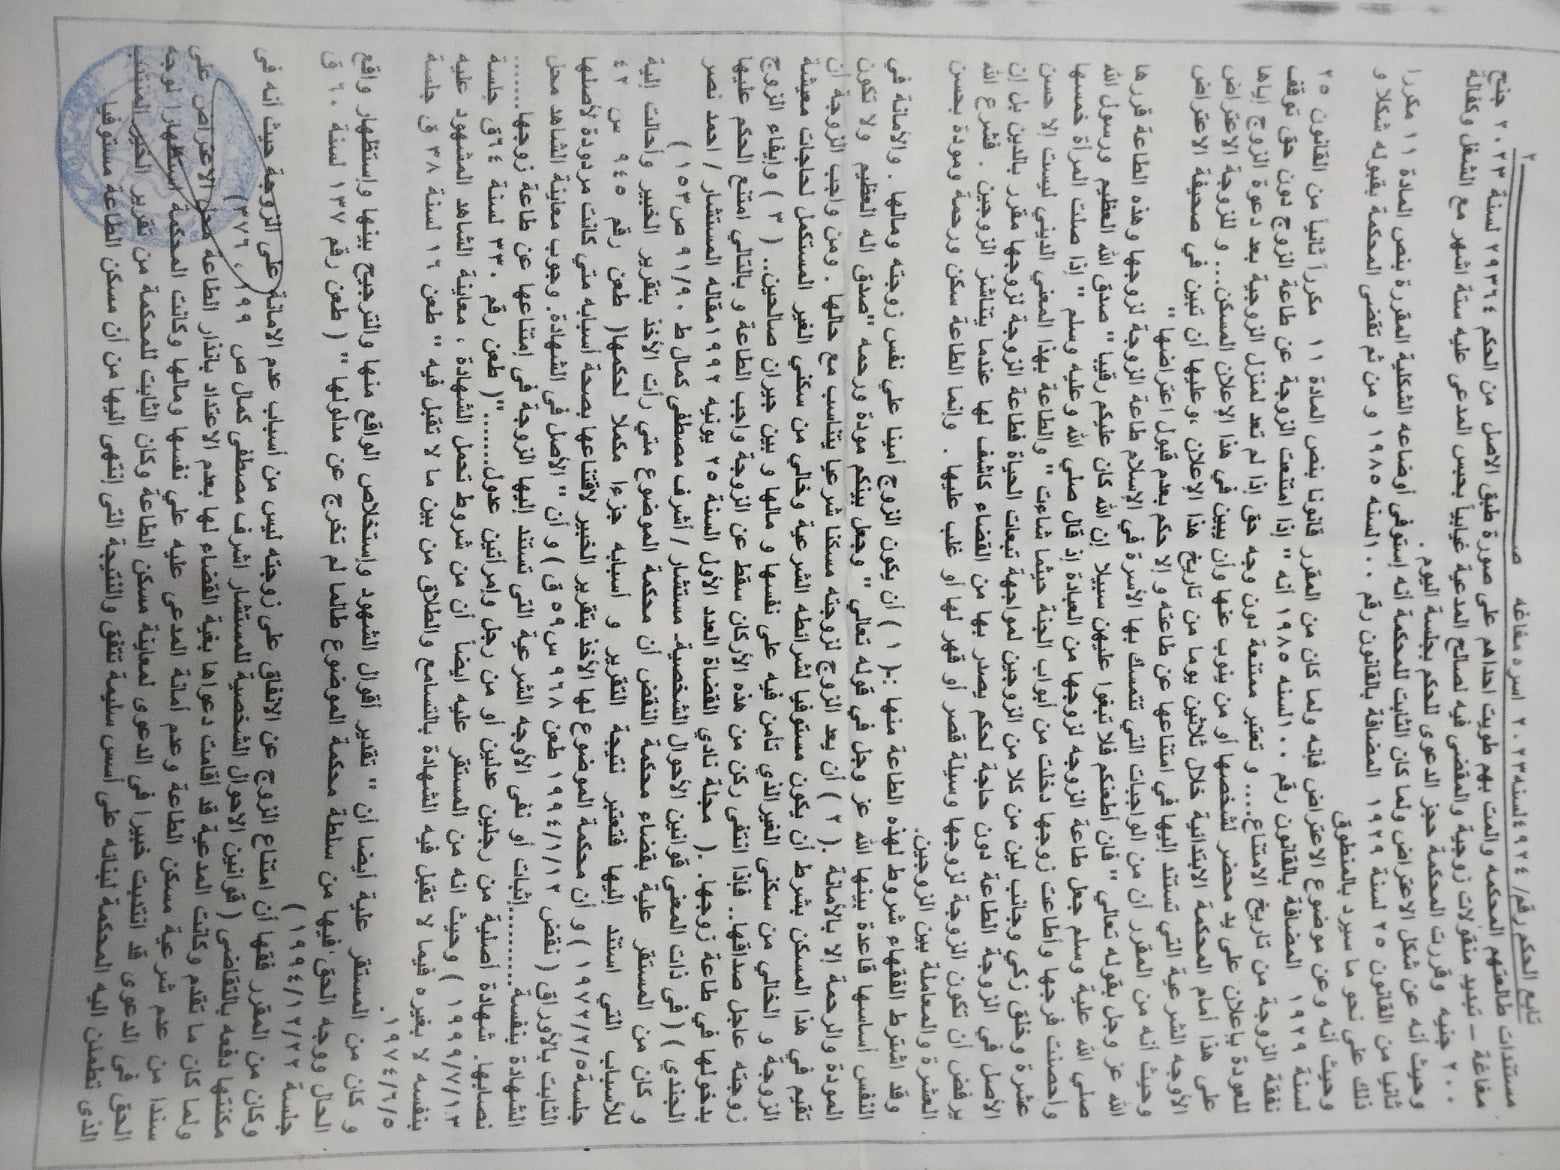 تابع الحكم رقم/ ٤٩٢٤لسنه٢٠٢٣ اسره مغاغه ص ٢
مستندات طالعتهم المحكمه والمت بهم طويت احداهم على صورة طبق الاصل من الحكم ٢٩٣٦٤ لسنة ٢٠٢٣ جنح
مغاغة – تبديد منقولات زوجية والمقضى فيه لصالح المدعية غيابياً بحبس المدعى عليه ستة اشهر مع الشغل وكفالة
٢٠٠ جنيه وقررت المحكمة حجز الدعوى للحكم بجلسة اليوم .
وحيث أنه عن شكل الاعتراض ولما كان الثابت للمحكمة أنه إستوفى أوضاعه الشكلية المقررة بنص المادة ١١ مكررا
ثانيا من القانون ٢٥ لسنة ١٩٢٩ المضافة بالقانون رقم ١٠٠لسنه ١٩٨٥ و من ثم تقضى المحكمة بقبوله شكلا و
ذلك على نحو ما سيرد بالمنطوق
وحيث أنه وعن موضوع الاعتراض فإنه ولما كان من المقرر قانونا بنص المادة ١١ مكرراً ثانياً من القانون ٢٥
لسنة ١٩٢٩ المضافة بالقانون رقم ١٠٠لسنه ١٩٨٥ أنه " إذا امتنعت الزوجة عن طاعة الزوج دون حق توقف
نفقة الزوجة من تاريخ الامتناع.... و تعتبر ممتنعة دون وجه حق إذا لم تعد لمنزل الزوجية بعد دعوة الزوج إياها
للعودة بإعلان على يد محضر لشخصها أو من ينوب عنها وأن يبين في هذا الإعلان المسكن... و للزوجة الاعتراض
على هذا أمام المحكمة الابتدائية خلال ثلاثين يوما من تاريخ هذا الإعلان ،وعليها أن تبين في صحيفة الاعتراض
الأوجه الشرعية التي تستند إليها في امتناعها عن طاعته و إلا حكم بعدم قبول اعتراضها "
وحيث أنه من المقرر أن من الواجبات التي تتمسك بها الأسرة في الإسلام طاعة الزوجة لزوجها وهذه الطاعة قررها
الله عز وجل بقوله تعالي " فان أطعنكم فلا تبغوا عليهن سبيلا إن الله كان عليكم رقيبا " صدق الله العظيم ورسول الله
صلي الله علية وسلم جعل طاعة الزوجه لزوجها من العبادة إذ قال صلي الله وعليه وسلم " إذا صلت المرأة خمسها
وأحصنت فرجها وأطاعت زوجها دخلت من أبواب الجنة حيثما شاءت " والطاعة بهذا المعني الديني ليست إلا حسن
عشرة وخلق زكي وجانب لين من كلا من الزوجين لمواجهة تبعات الحياة فطاعة الزوجة لزوجها مقرر بالدين بل إن
الأصل في الزوجة الطاعة دون حاجة لحكم يصدر بها من القضاء كاشف لها عندما يتناشز الزوجين . فشرع الله
يرفض أن تكون الزوجة لزوجها وسيلة قصر أو قهر لها أو غلب عليها . وإنما الطاعة سكن ورحمة ومودة بحسن
العشرة والمعاملة بين الزوجين.
وقد اشترط الفقهاء شروط لهذه الطاعة منها :ـ( ١ ) أن يكون الزوج أمينا علي نفس زوجته ومالها . والأمانة في
النفس أساسها قاعدة بينها الله عز وجل في قوله تعالي " وجعل بينكم مودة ورحمه "صدق اله العظيم ولا تكون
المودة والرحمة إلا بالأمانة .( ٢ ) أن يعد الزوج لزوجته مسكنا شرعيا يتناسب مع حالها . ومن واجب الزوجة أن
تقيم في هذا المسكن بشرط أن يكون مستوفيا لشرائطه الشرعية وخالي من سكني الغير المستكمل لحاجات معيشة
الزوجة و الخالي من سكنى الغيرالذي تأمن فيه على نفسها و مالها و بين جيران صالحين.. ( ٣ ) وإيفاء الزوج
زوجته عاجل صداقها.. فإذا انتفى ركن من هذه الأركان سقط عن الزوجة واجب الطاعة و بالتالي امتنع الحكم عليها
بدخولها في طاعة زوجها. .( مجلة نادي القضاة العدد الأول السنة ٢٥ يونيه ١٩٩٢مقاله المستشار / احمد نصر
الجندي ) ( فى ذات المعنى قوانين الأحوال الشخصية- مستشار / أشرف مصطفى كمال ط ٩١/٩٠ ص١٥٣ )
و كان من المستقر علية بقضاء محكمة النقض أن محكمة الموضوع متي رأت الأخذ بتقرير الخبير وأحالت إلية
للأسباب التي استند إليها فتعتبر نتيجة التقرير و أسبابه جزءا مكملا لحكمها( طعن رقم ٩٤٥ س ٤٢
جلسة١٩٧٢/٢/٥ ) و أن محكمة الموضوع لها الأخذ بتقرير الخبير لاقتناعها بصحة أسبابه متي كانت مردودة لأصلها
الثابت بالأوراق ( نقض ١٩٩٤/١/١٢ طعن ٩٦٨ س٥٩ ق ) و أن " الأصل فى الشهادة. وجوب معاينة الشاهد محل
الشهادة بنفسة..........إثبات أو نفى الأوجه الشرعية التى تستند إليها الزوجة فى إمتناعها عن طاعة زوجها.......
نصابها. شهادة أصلية من رجلين عدلين أو من رجل وإمرأتين عدول......."( طعن رقم ٣٣٠ لسنة ٦٤ق جلسة
١٩٩٩/٧/١٣ ) وحيث انه من المستقر عليه ايضاً أن من شروط تحمل الشهادة ، معاينة الشاهد المشهود عليه
بنفسه لا بغيره فيما لا تقبل فيه الشهادة بالتسامع والطلاق من بين ما لا تقبل فيه " طعن ١٦ لسنة ٣٨ ق جلسة
١٩٧٤/٦/٥.
و كان من المستقر علية أيضا أن " تقدير أقوال الشهود وإستخلاص الواقع منها والترجيح بينها وإستظهار واقع
الحال ووجه الحق فيها من سلطة محكمة الموضوع طالما لم تخرج عن مدلولها " ( طعن رقم ١٣٧ لسنة ٦٠ ق
جلسة ١٩٩٤/١٢/٢٢ )
وكان من المقرر فقها أن امتناع الزوج عن الانفاق على زوجته ليس من أسباب عدم الامانة على الزوجة حيث أنه فى
مكنتها دفعه بالتقاضى ( قوانين الاحوال الشخصية للمستشار اشرف مصطفى كمال ص ١٩٩ ، ٣٧٦)
ولما كان ما تقدم وكانت المدعية قد أقامت دعواها بغية القضاء لها بعدم الاعتداد بانذار الطاعة محل الاعتراض على
سندا من عدم شرعية مسكن الطاعة وعدم أمانة المدعى عليه علي نفسها ومالها وكانت المحكمة استظهارا لوجه
الحق فى الدعوى قد انتدبت خبيرا فى الدعوى لمعاينة مسكن الطاعة وكان الثابت للمحكمة من تقرير الخبير المنتدب
الذى تطمئن اليه المحكمة لبنائه على أسس سليمة تتفق والنتيجة التى إنتهى اليها من أن مسكن الطاعة مستوفيا